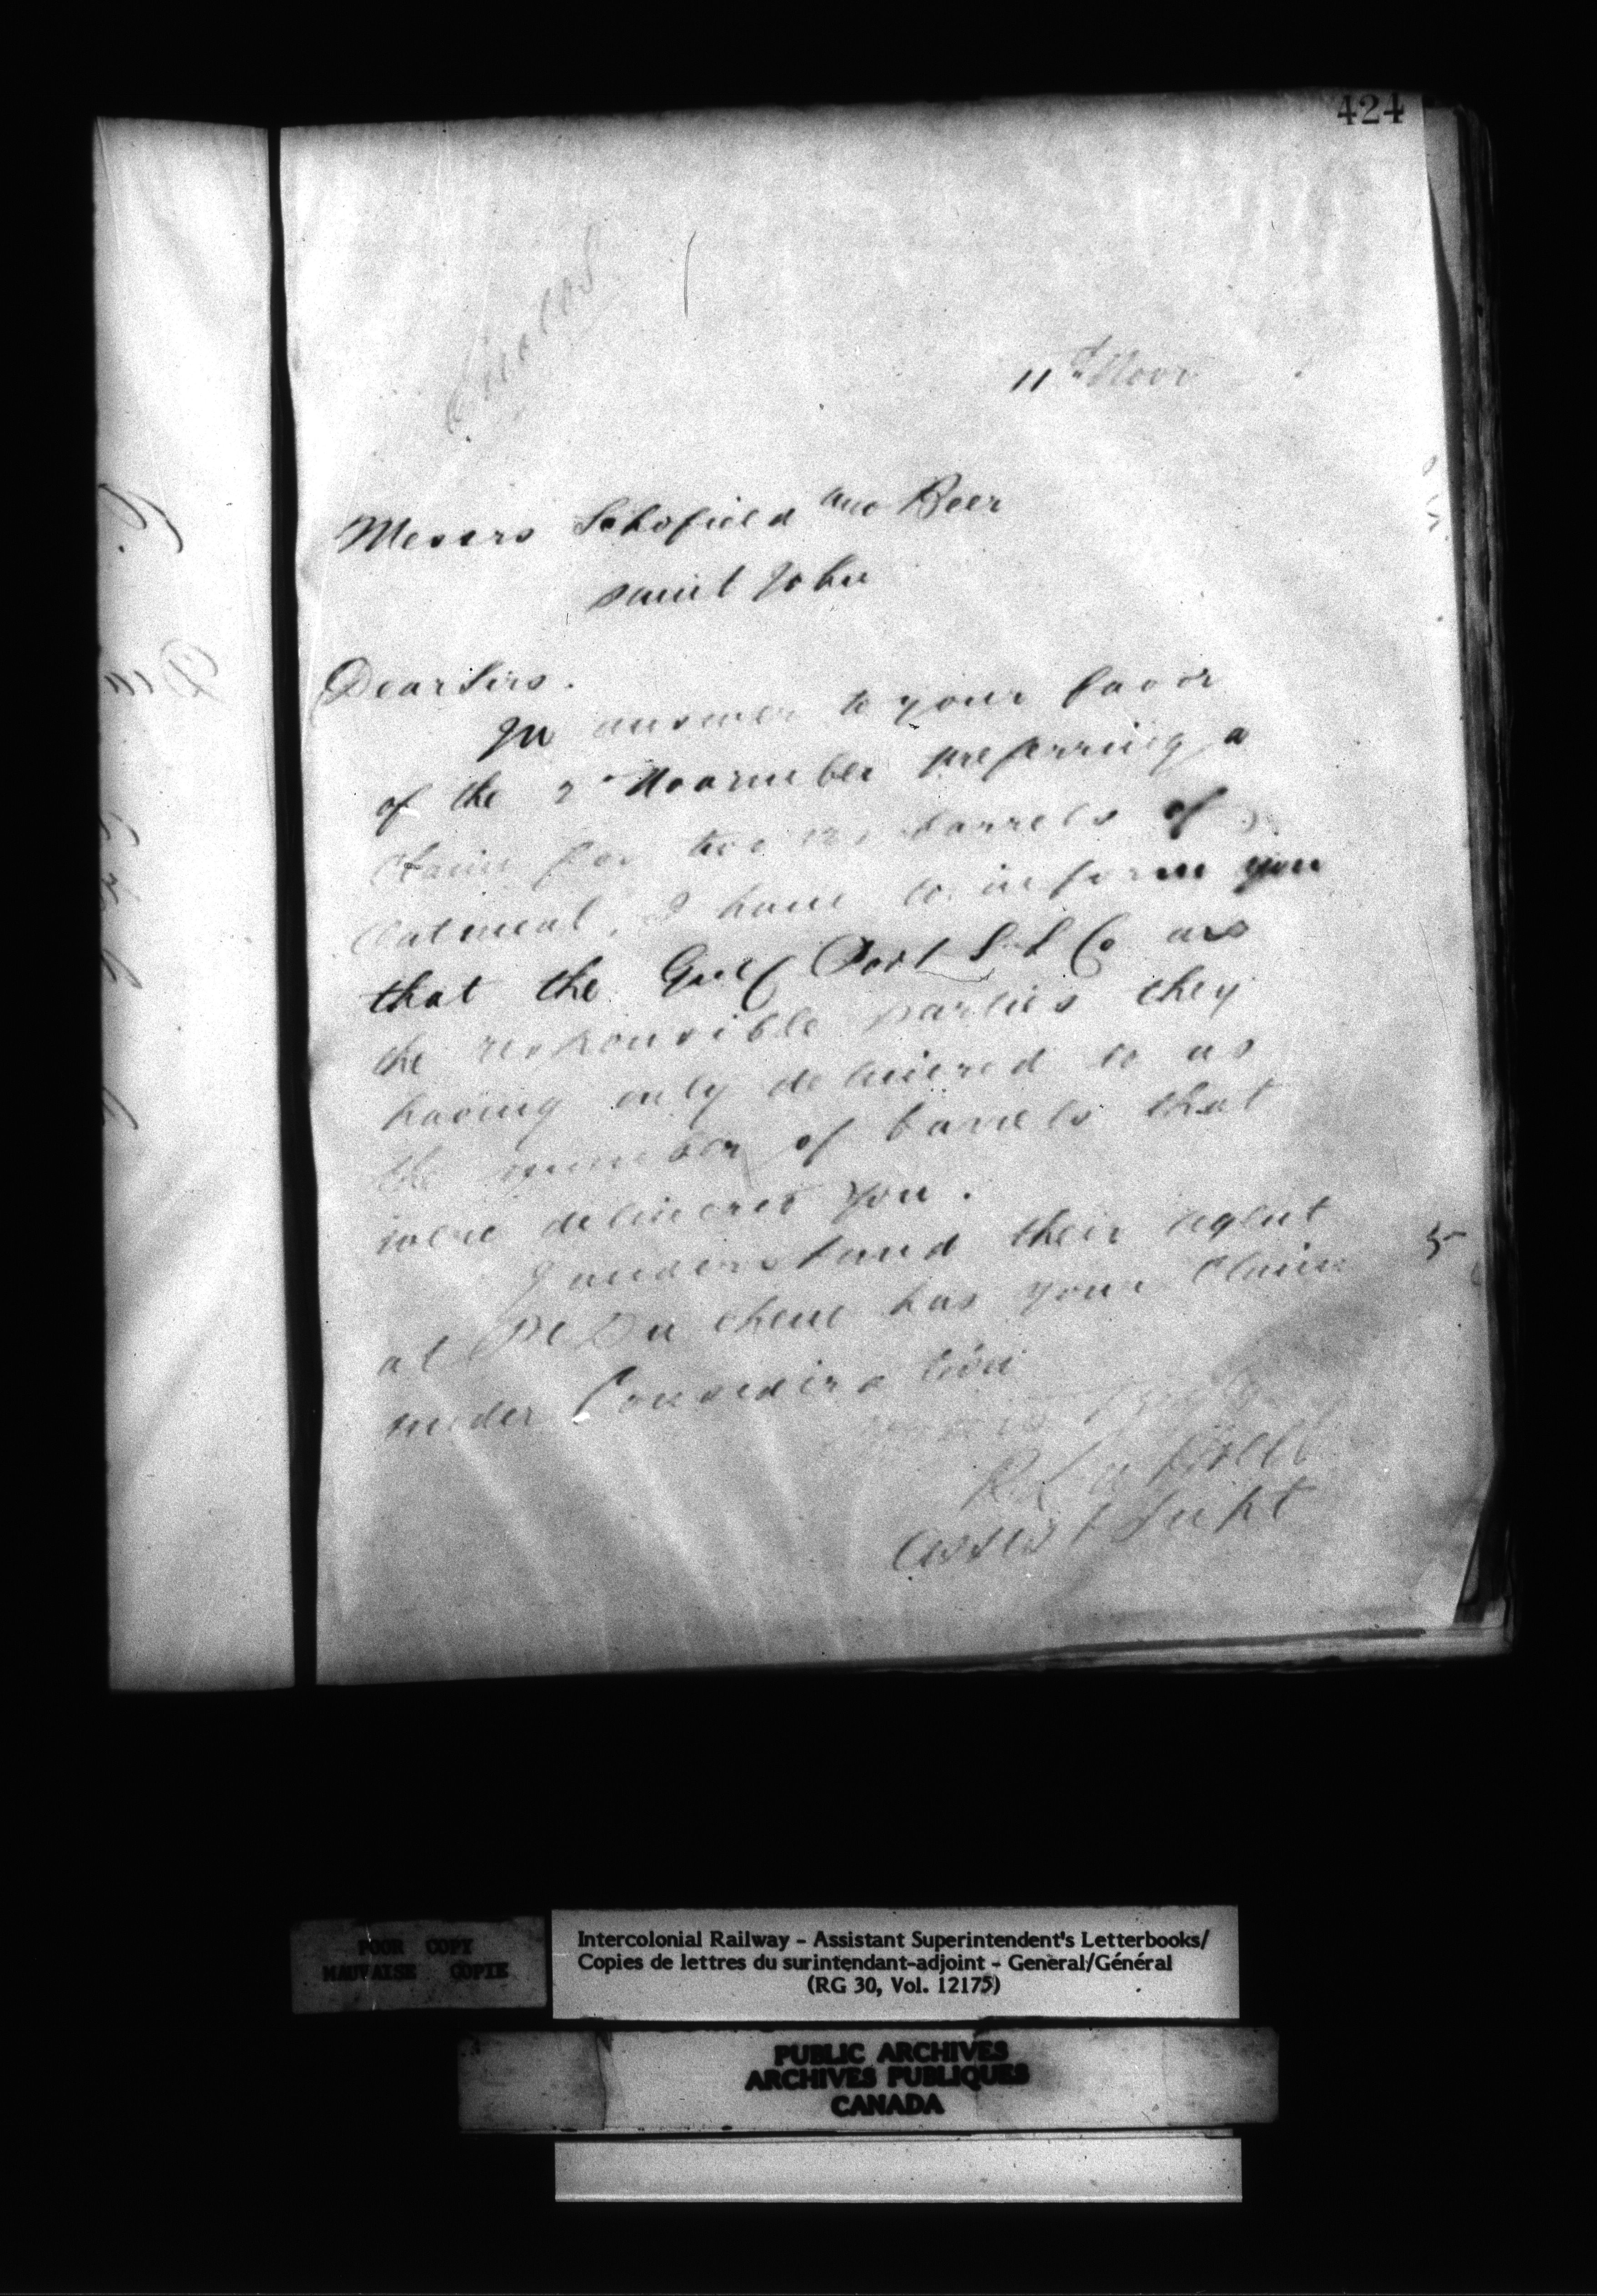 424
11th Novr
Messrs Schofield and Beer
Saint John
Dear Sirs.
In answer to your favor
of the 2d November preferring a
Claim for two barrels of
Oatmeal, I have to inform you
that the Gulf Port S.S. Co are
the responsible parties they
having only delivered to us
the number of barrels that
were delivered you.
I understand their agent
at Pt Du Chene has your Claim
under Consideration
Yours Truly
Assist Supt
POOR COPY
MAUVAISE COPIE
Intercolonial Railway - Assistant Superintendent's Letterbooks/
Copies de lettres du surintendant-adjoint - General/Général
(RG 30, Vol. 12175)
PUBLIC ARCHIVES
ARCHIVES PUBLIQUES
CANADA